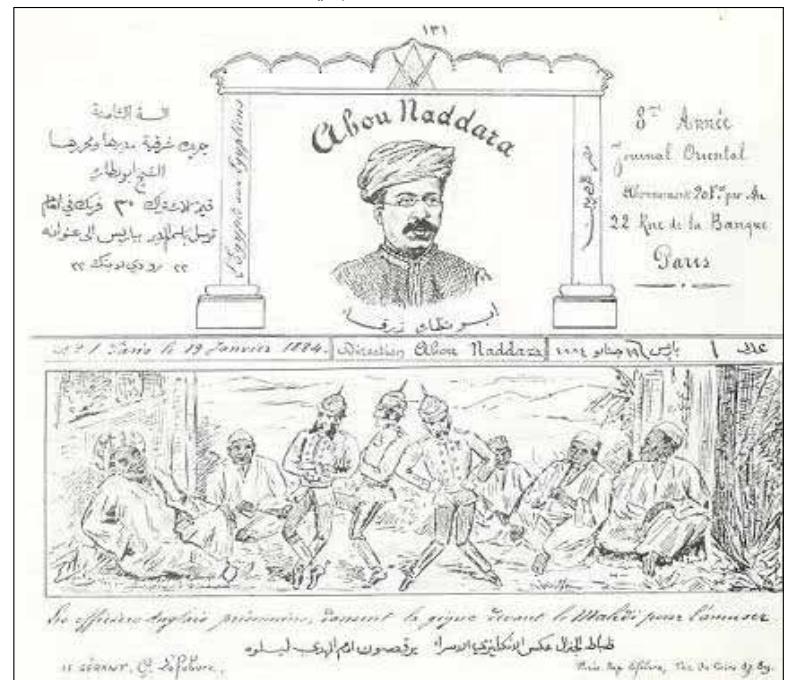 ١٣١
السنة الثامنة
جريدة شرقية مديرها ومحررها
الشيخ ابو نظارة
قيمة الاشتراك ٣٠ فرنك في العام
ترسل باسم المدير بباريس الى عنوانه
٢٢ رو دي لا بنك ٢٢
L'Egypte aux Egyptiens
Abou Naddara
ابو نظاره زرقاء
مصر للمصريين
8me Année
Journal Oriental
Abonnement par An
22 Rue de la Banque
Paris
No 1 Paris le 19 Janvier 1884.
Direction Abou Naddara
عدد ١ باريس ١٩ جنايو ١٨٨٤
Les officiers Anglais prisonniers, dansent la gigue devant le Mahdi pour l'amuser
ضباط الجنرال هكس الانكليزي الاسرا يرقصون امام المهدي ليسلوه
LE GÉRANT, G. Lefebvre.
Paris. Imp. Lefebvre, du Caire